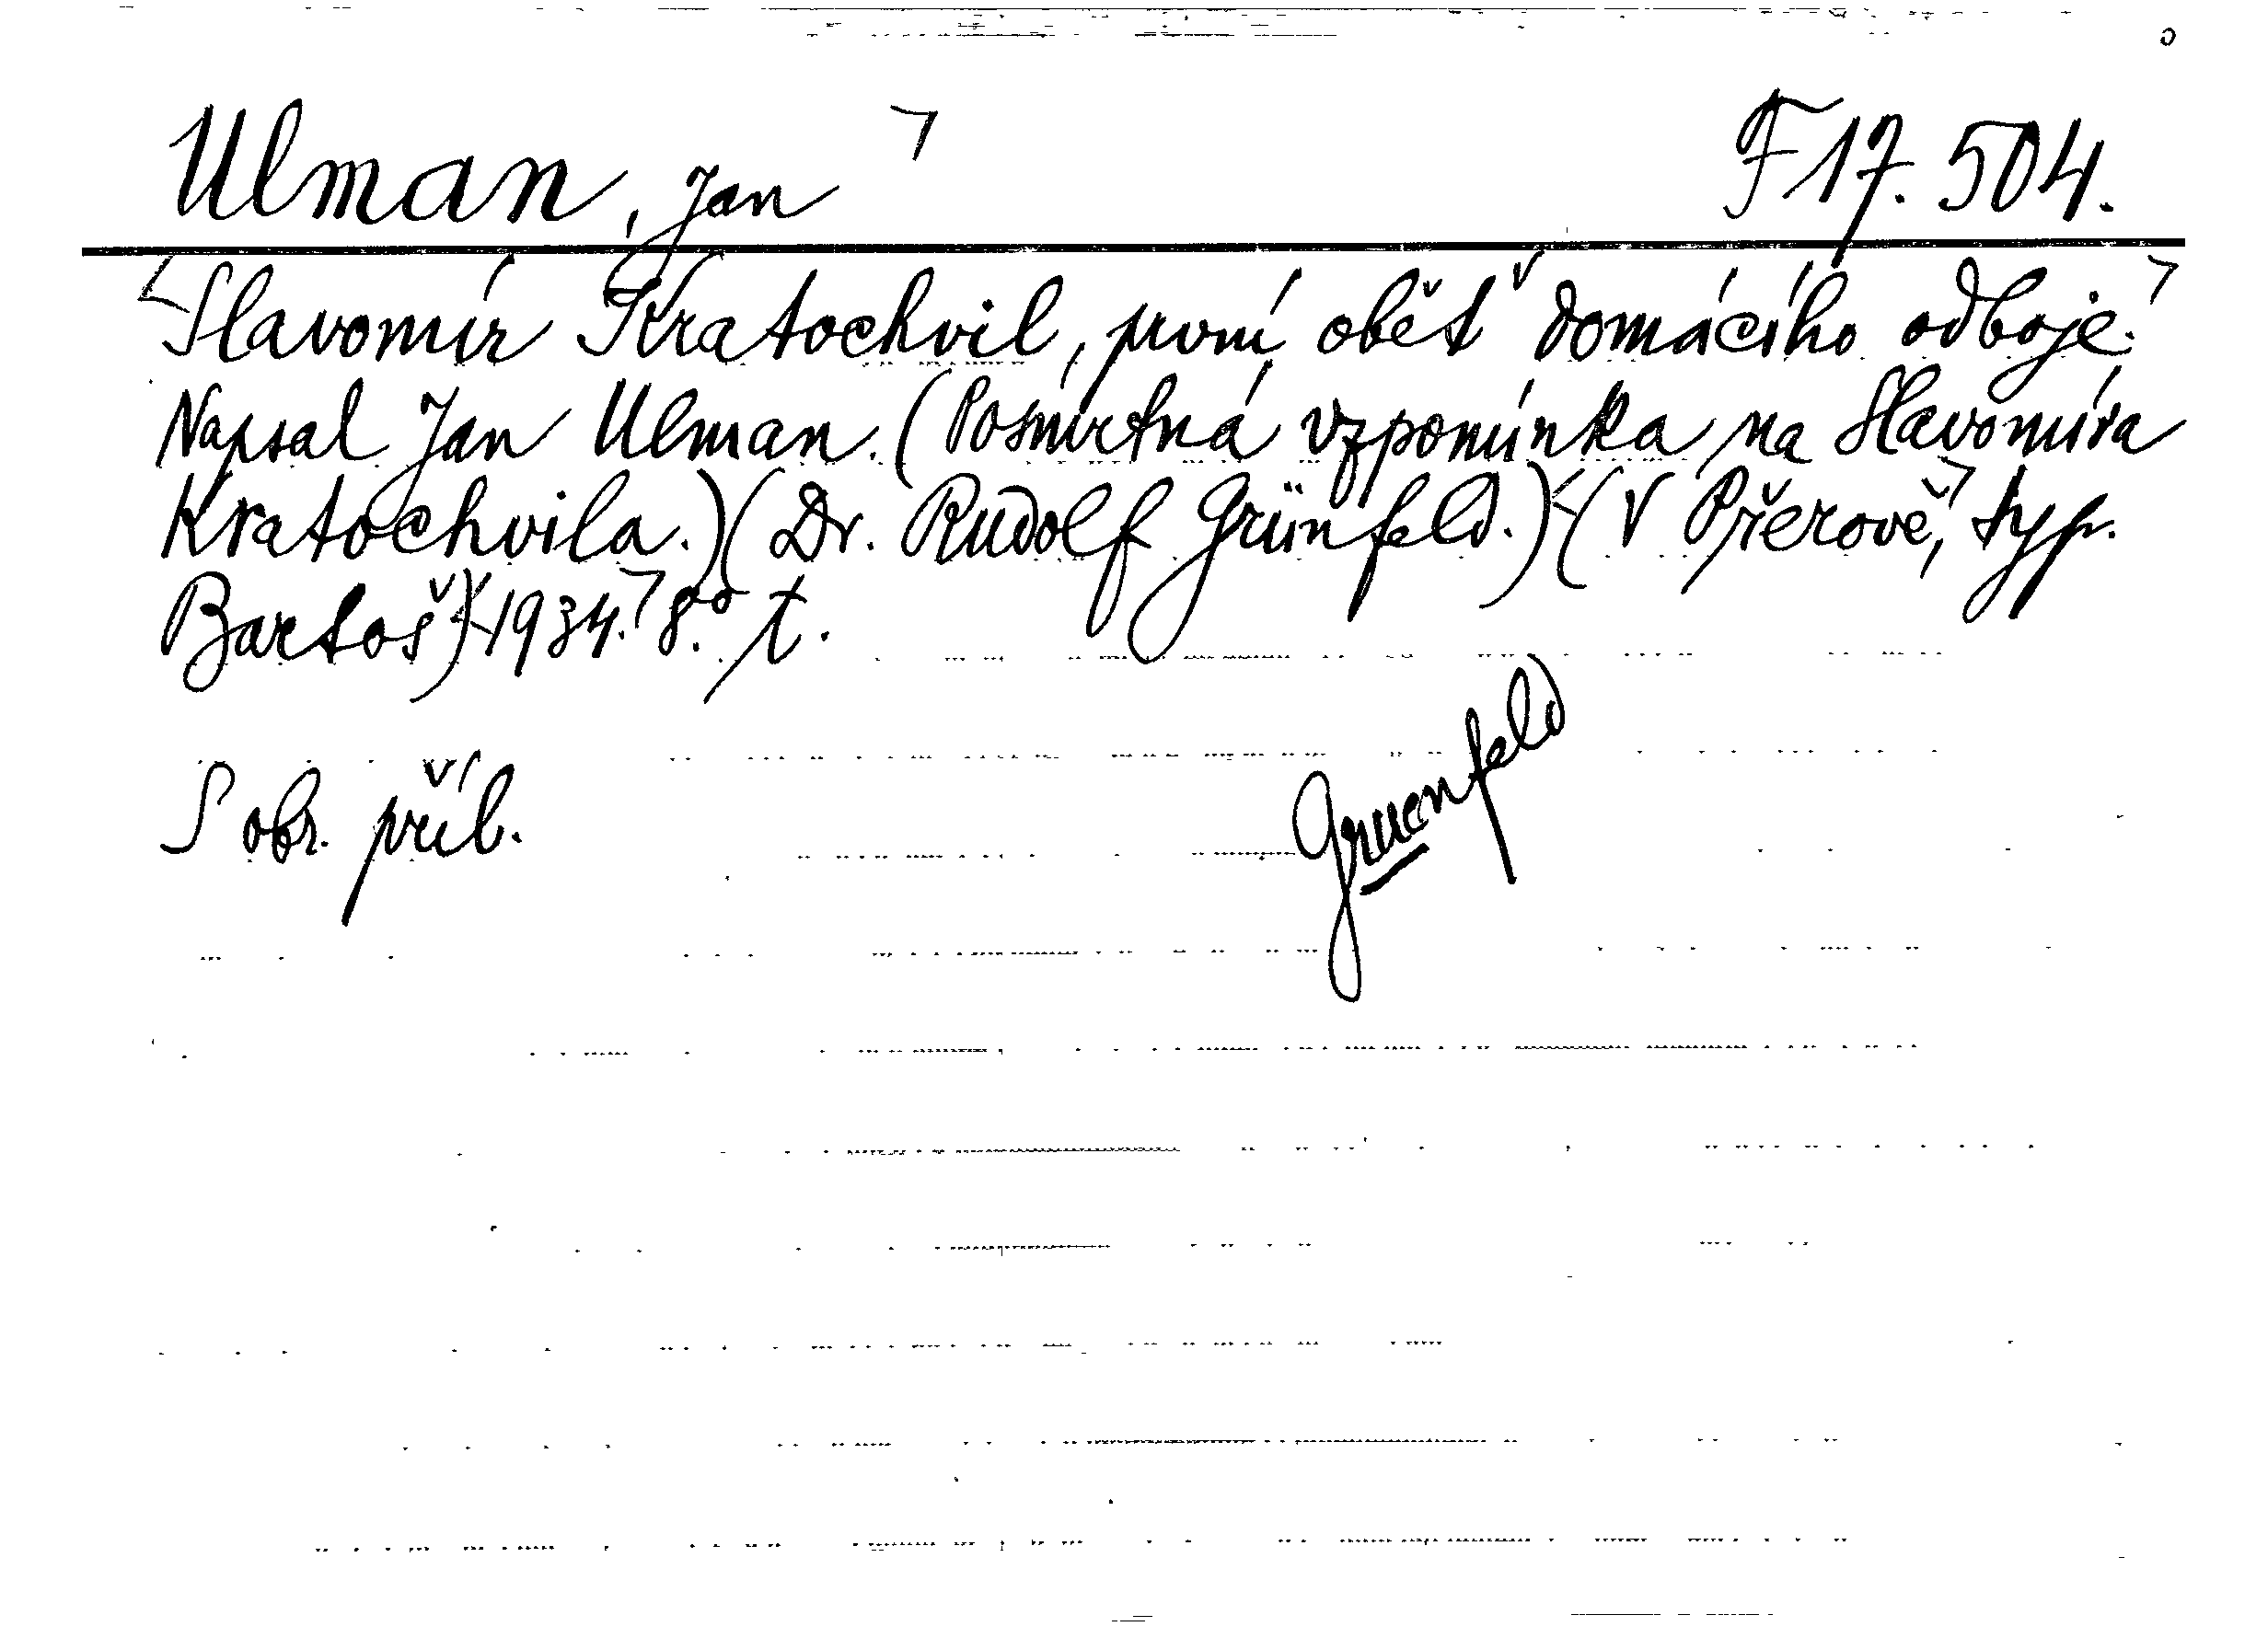 Ulman, Jan
F 17.504.
Slavomír Kratochvil, první oběť domácího odboje.
Napsal Jan Ulman. (Posmrtná vzpomínka na Slavomíra
Kratochvila.) (Dr. Rudolf Grünfeld.) (V Přerově, typ.
Bartoš) 1934. 8.° t.
S obr. příl.
Gruenfeld